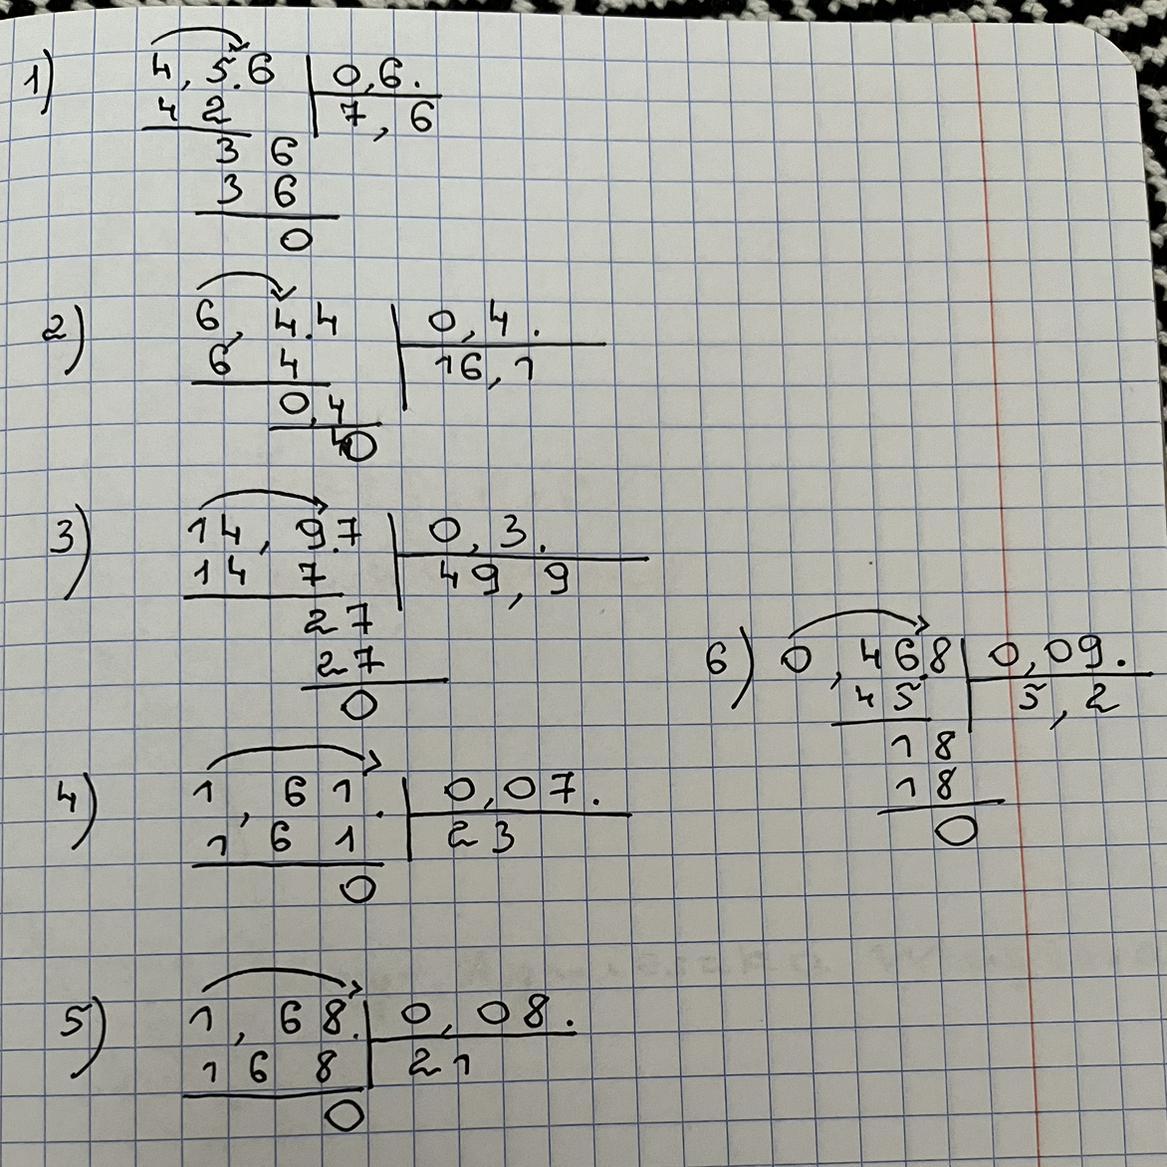 1) 4,5.6 | 0,6.
4 2 | 7,6
3 6
3 6
0
2) 6,4.4 | 0,4.
6 4 | 16,1
0,4
0
3) 14,9.7 | 0,3.
14 7 | 49,9
27
27
0
4) 1,61. | 0,07.
1 6 1 | 23
0
5) 1,68. | 0,08.
1 6 8 | 21
0
6) 0,46.8 | 0,09.
45 | 5,2
18
18
0